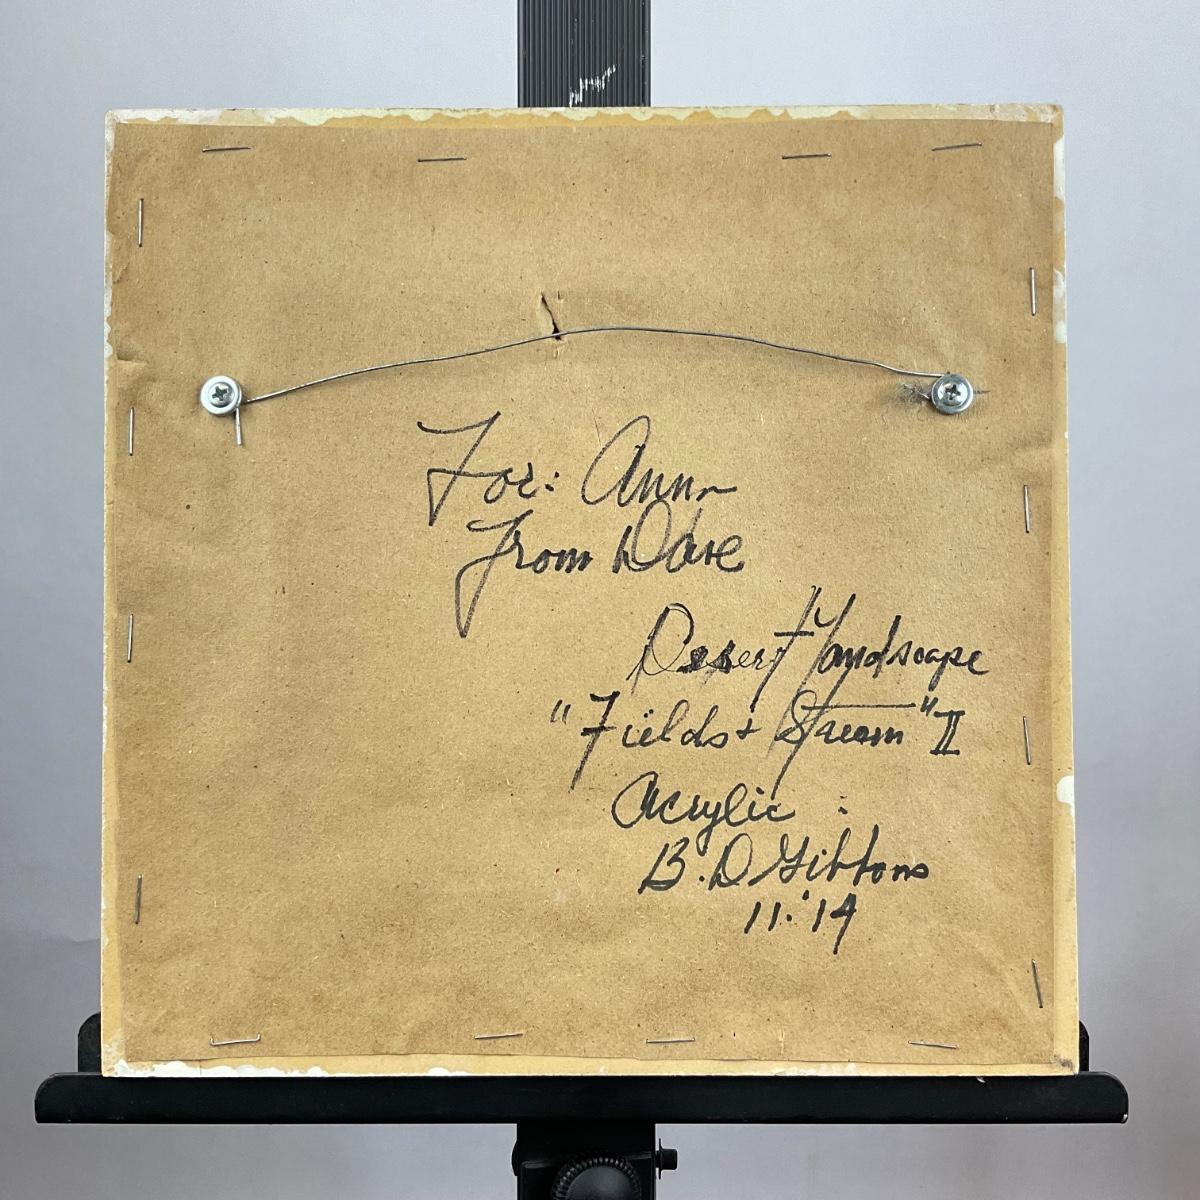 For: Ann
From Dave
Desert Landscape
"Fields + Stream" II
Acrylic :
B. D Gibbons
11.'14